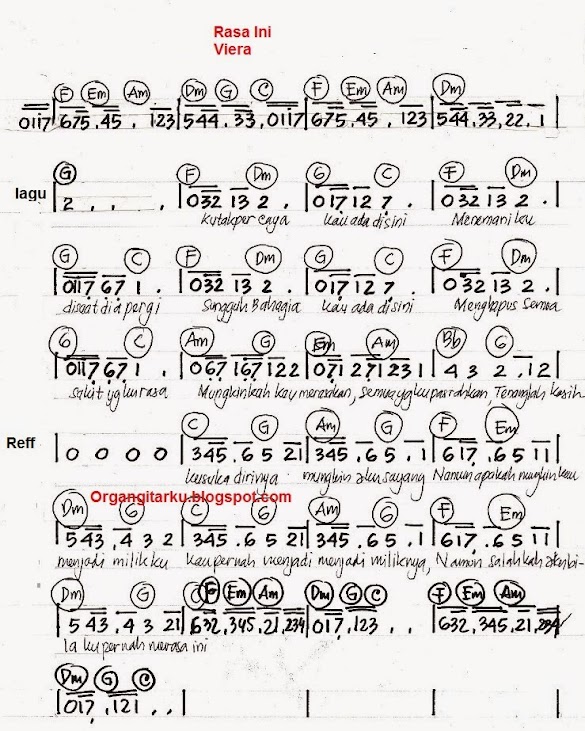 Rasa Ini
Viera
F Em Am Dm G C F Em Am Dm
0117 | 675 . 45 . 123 | 544 . 33 , 0117 | 675 . 45 . 123 | 544 . 33 , 22 . 1
G F Dm G C F Dm
lagu | 2 . . . | 032 13 2 . | 017 12 7 . | 032 13 2 . |
kutakpercaya kau ada disini Menemaniku
G C F Dm G C F Dm
| 0117 67 1 . | 032 13 2 . | 017 12 7 . | 032 13 2 . |
disaat dia pergi Sungguh Bahagia kau ada disini Menghapus Semua
G C Am G Em Am Bb G
| 0117 67 1 . | 067 167 122 | 071 271 231 | 4 3 2 . 12
Sakit yg kurasa Mungkinkah kau merasakan, Semua yg ku pasrahkan, Tenanglah kasih
C G Am G F Em
Reff | 0 0 0 0 | 345 . 6 5 21 | 345 . 6 5 . 1 | 617 . 65 11 |
kusuka dirinya mungkin aku sayang Namun apakah mungkin kau
Organgitarku.blogspot.com
Dm G C G Am G F Em
| 543 . 4 3 2 | 345 . 6 5 21 | 345 . 65 . 1 | 617 . 65 11 |
menjadi milikku kau pernah menjadi menjadi miliknya, Namun salahkah aku bi-
Dm G C F Em Am Dm G C F Em Am
| 543 . 4 3 21 | 632 , 345 , 21 , 234 | 017 , 123 . . | 632 , 345 , 21 , 234
la ku pernah merasa ini
Dm G C
| 017 , 121 . . | | | |